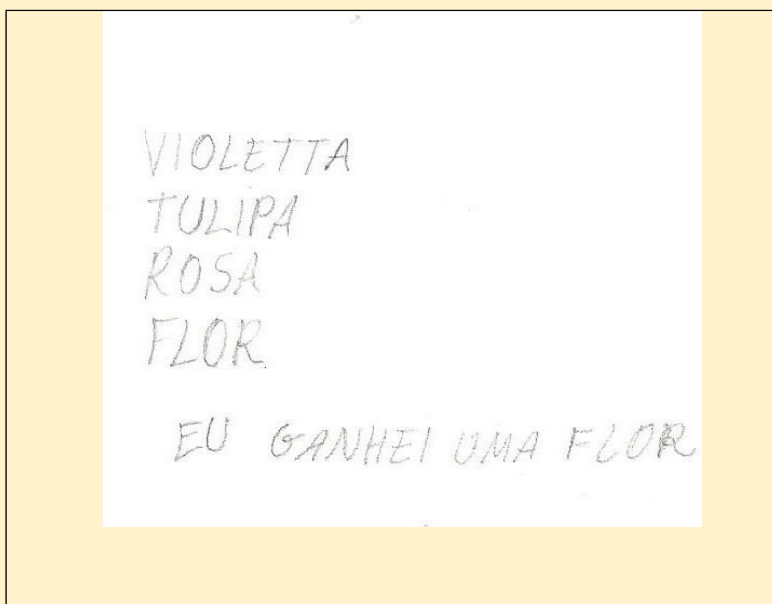 VIOLETTA
TULIPA
ROSA
FLOR
EU GANHEI UMA FLOR